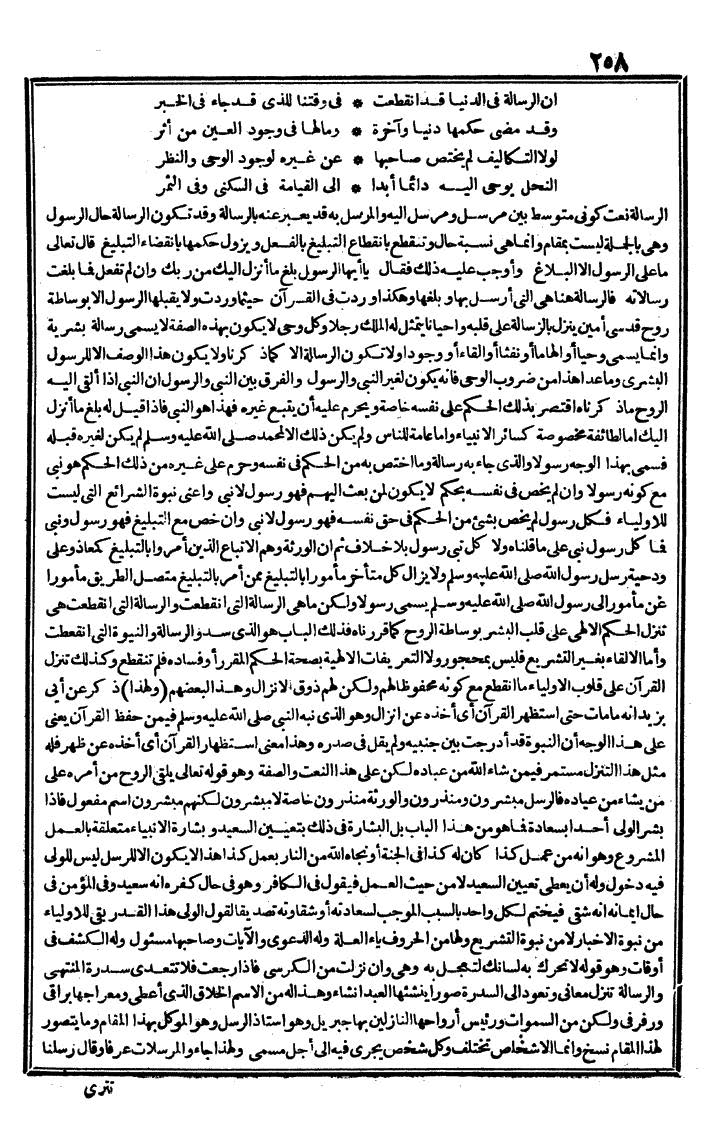 ٢٥٨
ان الرسالة فى الدنيا قد انقطعت * فى وقتنا للذى قد جاء فى الخبر
وقد مضى حكمها دنيا وآخرة * ومالها فى وجود العين من أثر
لولا التكاليف لم يختص صاحبها * عن غيره لوجود الوحى والنظر
النحل يوحى اليه دائما أبدا * الى القيامة فى السكنى وفى الثمر
الرسالة نعت كونى متوسط بين مرسل ومرسل اليه والمرسل به قد يعبر عنه بالرسالة وقد تكون الرسالة حال الرسول
وهى بالجملة ليست بمقام وانما هى نسبة حال وتنقطع بانقطاع التبليغ بالفعل ويزول حكمها بانقضاء التبليغ قال تعالى
ما على الرسول الا البلاغ وأوجب عليه ذلك فقال يا أيها الرسول بلغ ما أنزل اليك من ربك وان لم تفعل فما بلغت
رسالاته فالرسالة هنا هى التى أرسل بها وبلغها وهكذا وردت فى القرآن حيثما وردت ولا يقبلها الرسول الا بوساطة
روح قدسى أمين ينزل بالرسالة على قلبه واحيانا يتمثل له الملك رجلا وكل وحى لا يكون بهذه الصفة لا يسمى رسالة بشرية
وانما يسمى وحيا أو الهاما أو نفثا أو القاء أو وجودا ولا تكون الرسالة الا كما ذكرنا ولا يكون هذا الوصف الا للرسول
البشرى وما عدا هذا من ضروب الوحى فانه يكون لغير النبى والرسول والفرق بين النبى والرسول ان النبى اذا ألقى اليه
الروح ما ذكرناه اقتصر بذلك الحكم على نفسه خاصة ويحرم عليه أن يتبع غيره فهذا هو النبى فاذا قيل له بلغ ما أنزل
اليك اما لطائفة مخصوصة كسائر الانبياء واما عامة للناس ولم يكن ذلك الا لمحمد صلى الله عليه وسلم لم يكن لغيره قبله
فسمى بهذا الوجه رسولا والذى جاء به رسالة وما اختص به من الحكم فى نفسه وحرم على غيره من ذلك الحكم هو نبى
مع كونه رسولا وان لم يخص فى نفسه بحكم لا يكون لمن بعث اليهم فهو رسول لا نبى واعنى نبوة الشرائع التى ليست
للاولياء فكل رسول لم يخص بشئ من الحكم فى حق نفسه فهو رسول لا نبى وان خص مع التبليغ فهو رسول ونبى
فما كل رسول نبى على ما قلناه ولا كل نبى رسول بلا خلاف ثم ان الورثة وهم الاتباع الذين أمروا بالتبليغ كمعاذ وعلى
ودحية رسل رسول الله صلى الله عليه وسلم ولا يزال كل متأخر مأمورا بالتبليغ ممن أمر بالتبليغ متصل الطريق مأمورا
عن مأمور الى رسول الله صلى الله عليه وسلم يسمى رسولا ولكن ما هى الرسالة التى انقطعت والرسالة التى انقطعت هى
تنزل الحكم الالهى على قلب البشر بوساطة الروح كما قررناه فذلك الباب هو الذى سد والرسالة والنبوة التى انقطعت
وأما الالقاء بغير التشريع فليس بمحجور ولا التعريفات الالهية بصحة الحكم المقرر أو فساده فلم تنقطع وكذلك تنزل
القرآن على قلوب الاولياء ما انقطع مع كونه محفوظا لهم ولكن لهم ذوق الانزال وهذا لبعضهم (ولهذا) ذكر عن أبى
يزيد انه ما مات حتى استظهر القرآن أى أخذه عن انزال وهو الذى نبه النبى صلى الله عليه وسلم فيمن حفظ القرآن يعنى
على هذا الوجه أن النبوة قد أدرجت بين جنبيه ولم يقل فى صدره وهذا معنى استظهار القرآن أى أخذه عن ظهر فله
مثل هذا التنزل مستمر فيمن شاء الله من عباده لكن على هذا النعت والصفة وهو قوله تعالى يلقى الروح من أمره على
من يشاء من عباده فالرسل مبشرون ومنذرون والورثة منذرون خاصة لا مبشرون لكنهم مبشرون اسم مفعول فاذا
بشر الولى أحدا بسعادة فما هو من هذا الباب بل البشارة فى ذلك بتعيين السعيد وبشارة الانبياء متعلقة بالعمل
المشروع وهو انه من عمل كذا كان له كذا فى الجنة أو نجاه الله من النار بعمل كذا هذا لا يكون الا للرسل ليس للولى
فيه دخول وله أن يعطى تعيين السعيد لا من حيث العمل فيقول فى الكافر وهو فى حال كفره انه سعيد وفى المؤمن فى
حال ايمانه انه شقى فيختم لكل واحد بالسبب الموجب لسعادته أو شقاوته تصديقا لقول الولى هذا القدر بقى للاولياء
من نبوة الاخبار لا من نبوة التشريع ولها من الحروف ياء العلة وله الدعوى والآيات وصاحبها مسئول وله الكشف فى
أوقات وهو قوله لا تحرك به لسانك لتعجل به وهى وان نزلت من الكرسى فاذا رجعت فلا تتعدى سدرة المنتهى
والرسالة تنزل معانى وتعود الى السدرة صورا ينشئها العبد انشاء وهذا له من الاسم الخلاق الذى أعطى ومعراجها براقى
ورفرفى ولكن من السموات ورئيس أرواحها النازلين بها جبريل وهو استاذ الرسل وهو الموكل بهذا المقام وما يتصور
لهذا المقام نسخ وانما الاشخاص تختلف وكل شخص يجرى فيه الى أجل مسمى ولهذا جاء والمرسلات عرفا وقال رسلنا
تترى